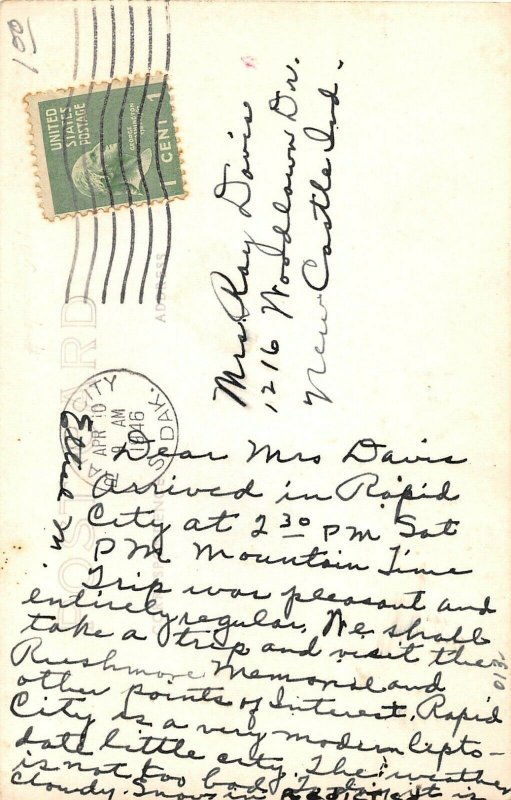 1 00
UNITED
STATES
POSTAGE
GEORGE WASHINGTON
1 CENT 1
POST CARD
ADDRESS
RAPID CITY
APR 10
AM
1946
S. DAK.
Mrs. Ray Davis
1216 Woodlawn Dr.
New Castle Ind.
Dear Mrs Davis
Arrived in Rapid
City at 2 30 PM Sat
PM Mountain Time
Trip was pleasant and
entirely regular. We shall
take a trip and visit the
Rushmore Memorial and
other points of Interest. Rapid
City is a very modern upto-
date little city. The weather
is not too bad. Today it is
cloudy. Snow in
013-